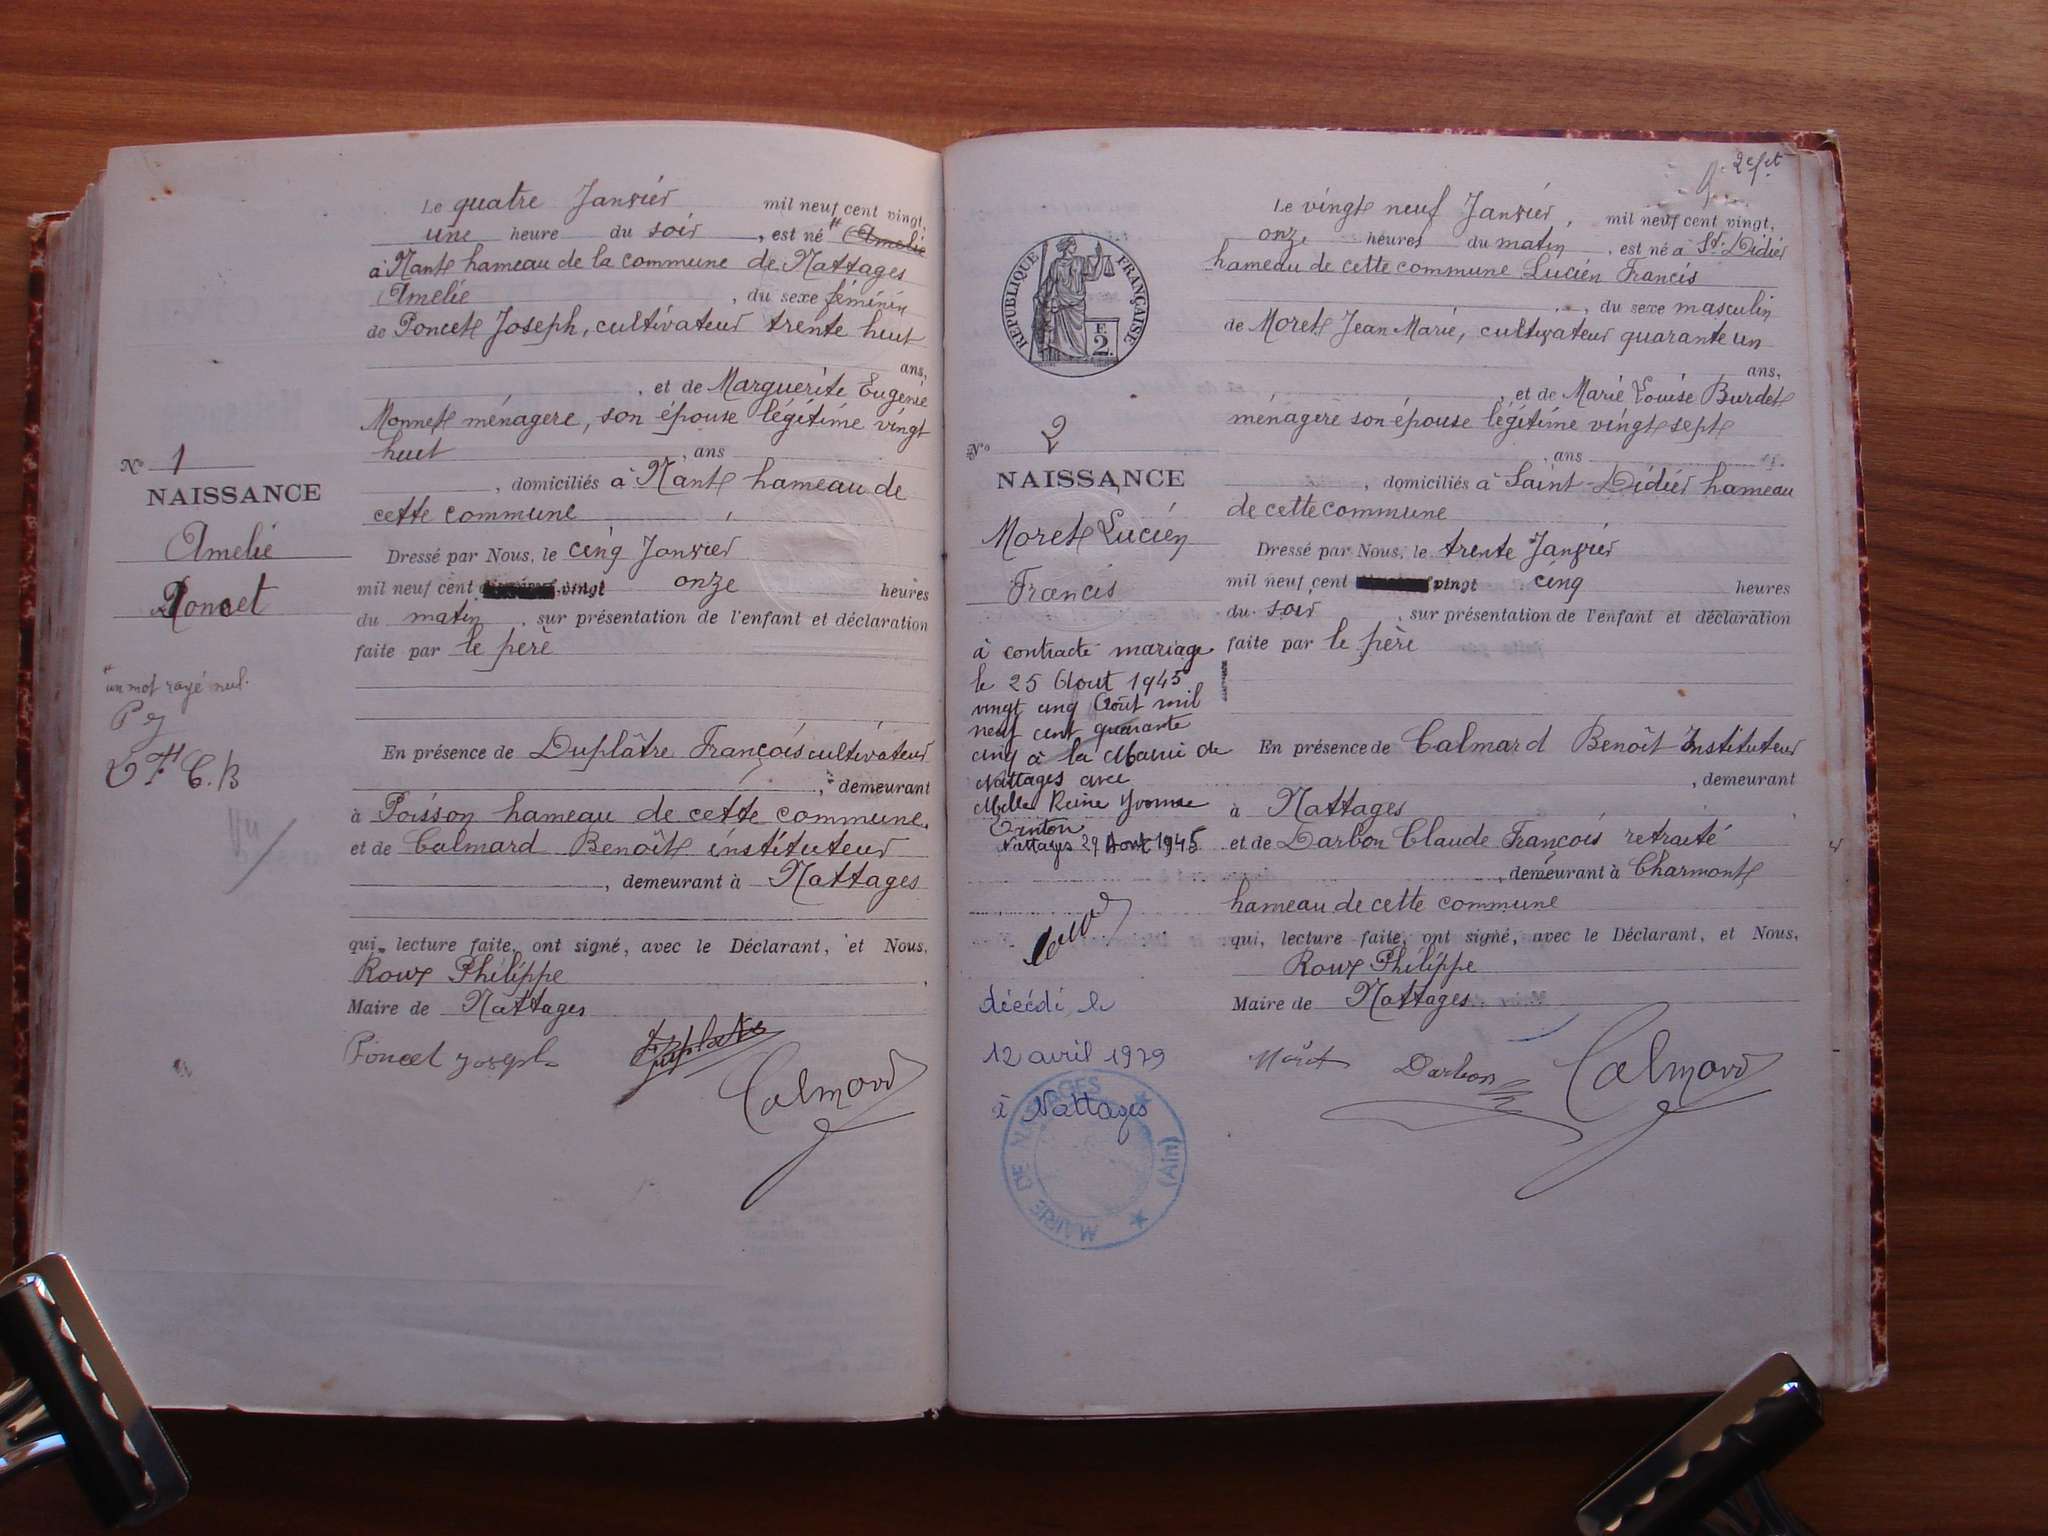 Le quatre Janvier mil neuf cent vingt,
une heure du soir, est né Amelie
à Nant hameau de la commune de Nattages
Amelie, du sexe féminin
de Poncet Joseph, cultivateur trente huit
ans,
, et de Marguerite Eugenie
Monnet ménagere, son épouse légitime vingt
huit ans
, domiciliés à Nant hameau de
cette commune
Dressé par Nous, le cinq Janvier
mil neuf cent vingt onze heures
du matin, sur présentation de l'enfant et déclaration
faite par le père
En présence de Duplâtre François cultivateur
, demeurant
à Poisson hameau de cette commune.
et de Calmard Benoît instituteur
, demeurant à Nattages
qui, lecture faite, ont signé, avec le Déclarant, et Nous,
Roux Philippe
Maire de Nattages
Poncet Joseph
Duplatre
Calmard
No 1
NAISSANCE
Amelie
Poncet
un mot rayé nul.
P J
C. B
Vu
2e ft
Le vingt neuf Janvier, mil neuf cent vingt,
onze heures du matin, est né à St. Didier
hameau de cette commune Lucien Francis
, du sexe masculin
de Moret Jean Marie, cultivateur quarante un
ans,
, et de Marie Louise Burdet
ménagere son épouse légitime vingt sept
, ans
, domiciliés à Saint-Didier hameau
de cette commune
Dressé par Nous, le trente Janvier
mil neuf cent vingt cinq heures
du soir, sur présentation de l'enfant et déclaration
faite par le père
En présence de Calmard Benoît Instituteur
, demeurant
à Nattages
et de Darbon Claude François retraité
, demeurant à Charmont
hameau de cette commune
qui, lecture faite, ont signé, avec le Déclarant, et Nous,
Roux Philippe
Maire de Nattages
Moret
Darbon
Calmard
REPUBLIQUE FRANÇAISE
F.
2.
No 2
NAISSANCE
Moret Lucien
Francis
à contracté mariage
le 25 Aout 1945
vingt cinq Août mil
neuf cent quarante
cinq à la Mairie de
Nattages avec
Melle Reine Yvonne
Nattages 29 Aout 1945
décédé le
12 avril 1979
à Nattages
MAIRIE DE NATTAGES
(Ain)